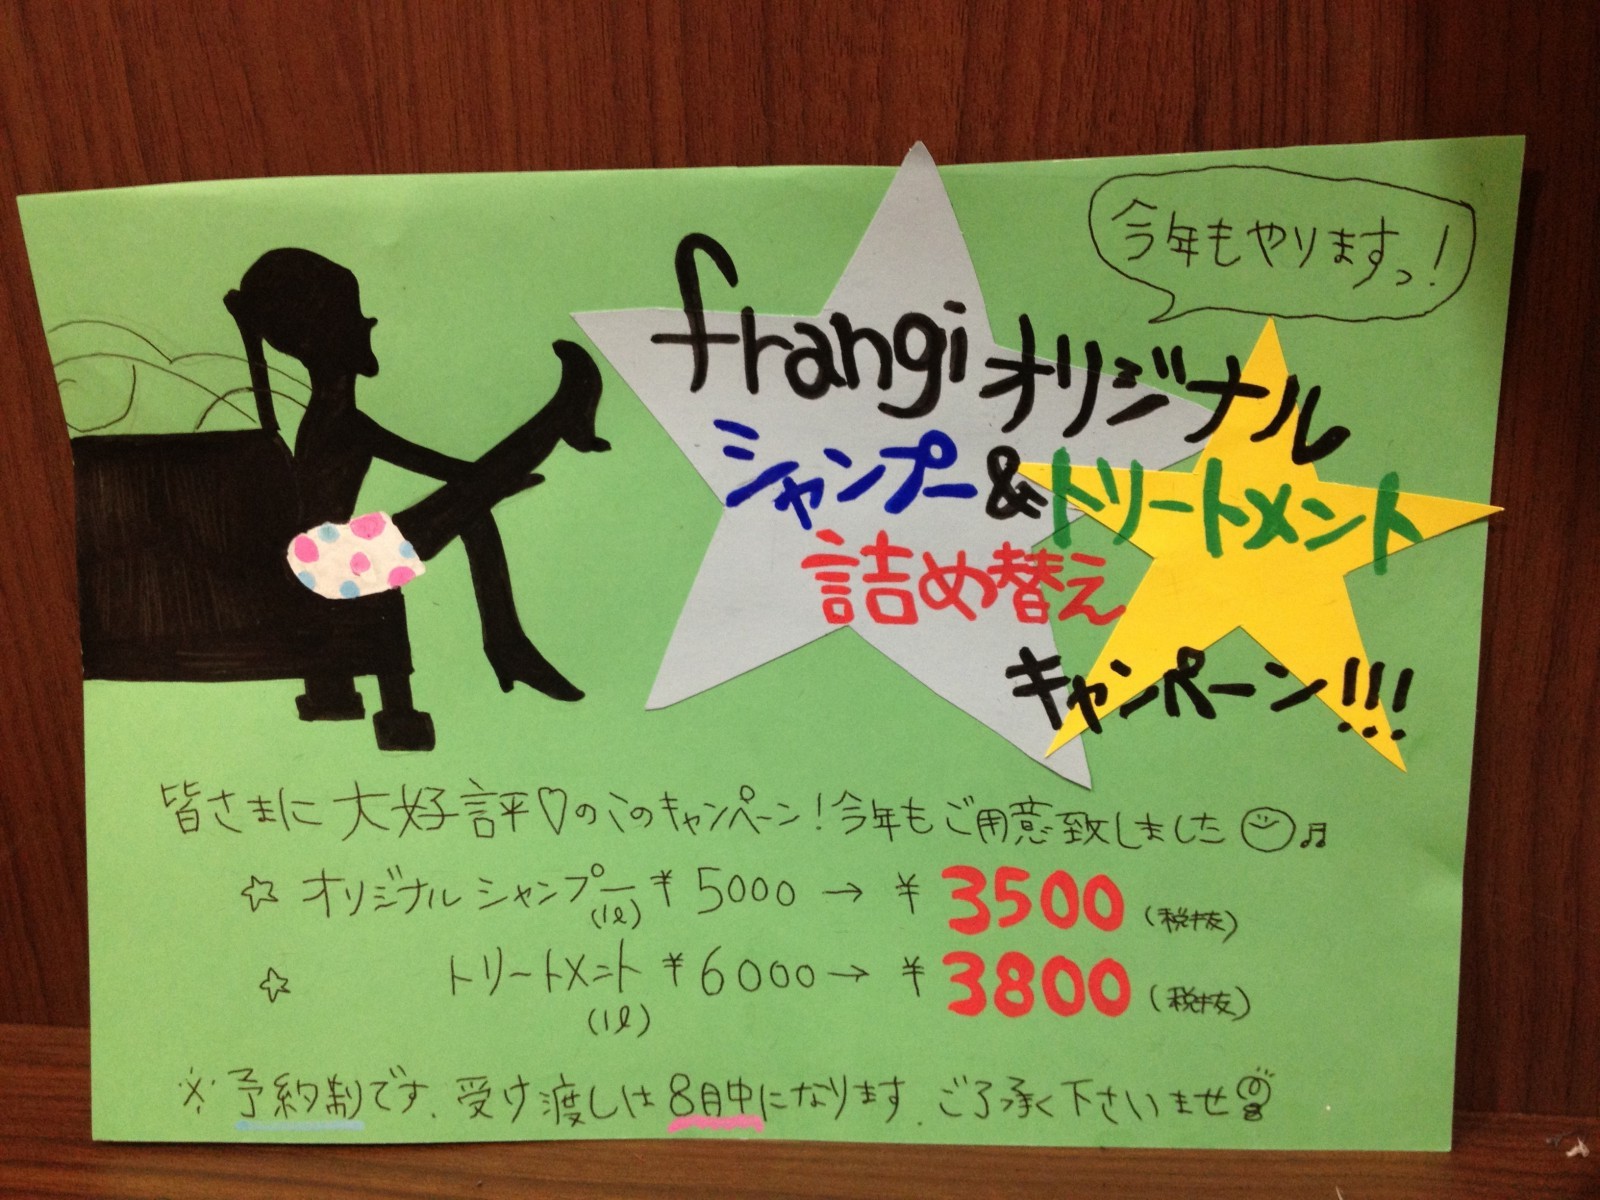 今年もやりますっ!
frangiオリジナル
シャンプー&トリートメント
詰め替え
キャンペーン!!!
皆さまに大好評♡のこのキャンペーン!今年もご用意致しました
☆ オリジナルシャンプー(1ℓ) ¥5000 → ¥3500 (税抜)
☆ トリートメント(1ℓ) ¥6000 → ¥3800 (税抜)
※予約制です. 受け渡しは8月中になります. ご了承く下さいませ